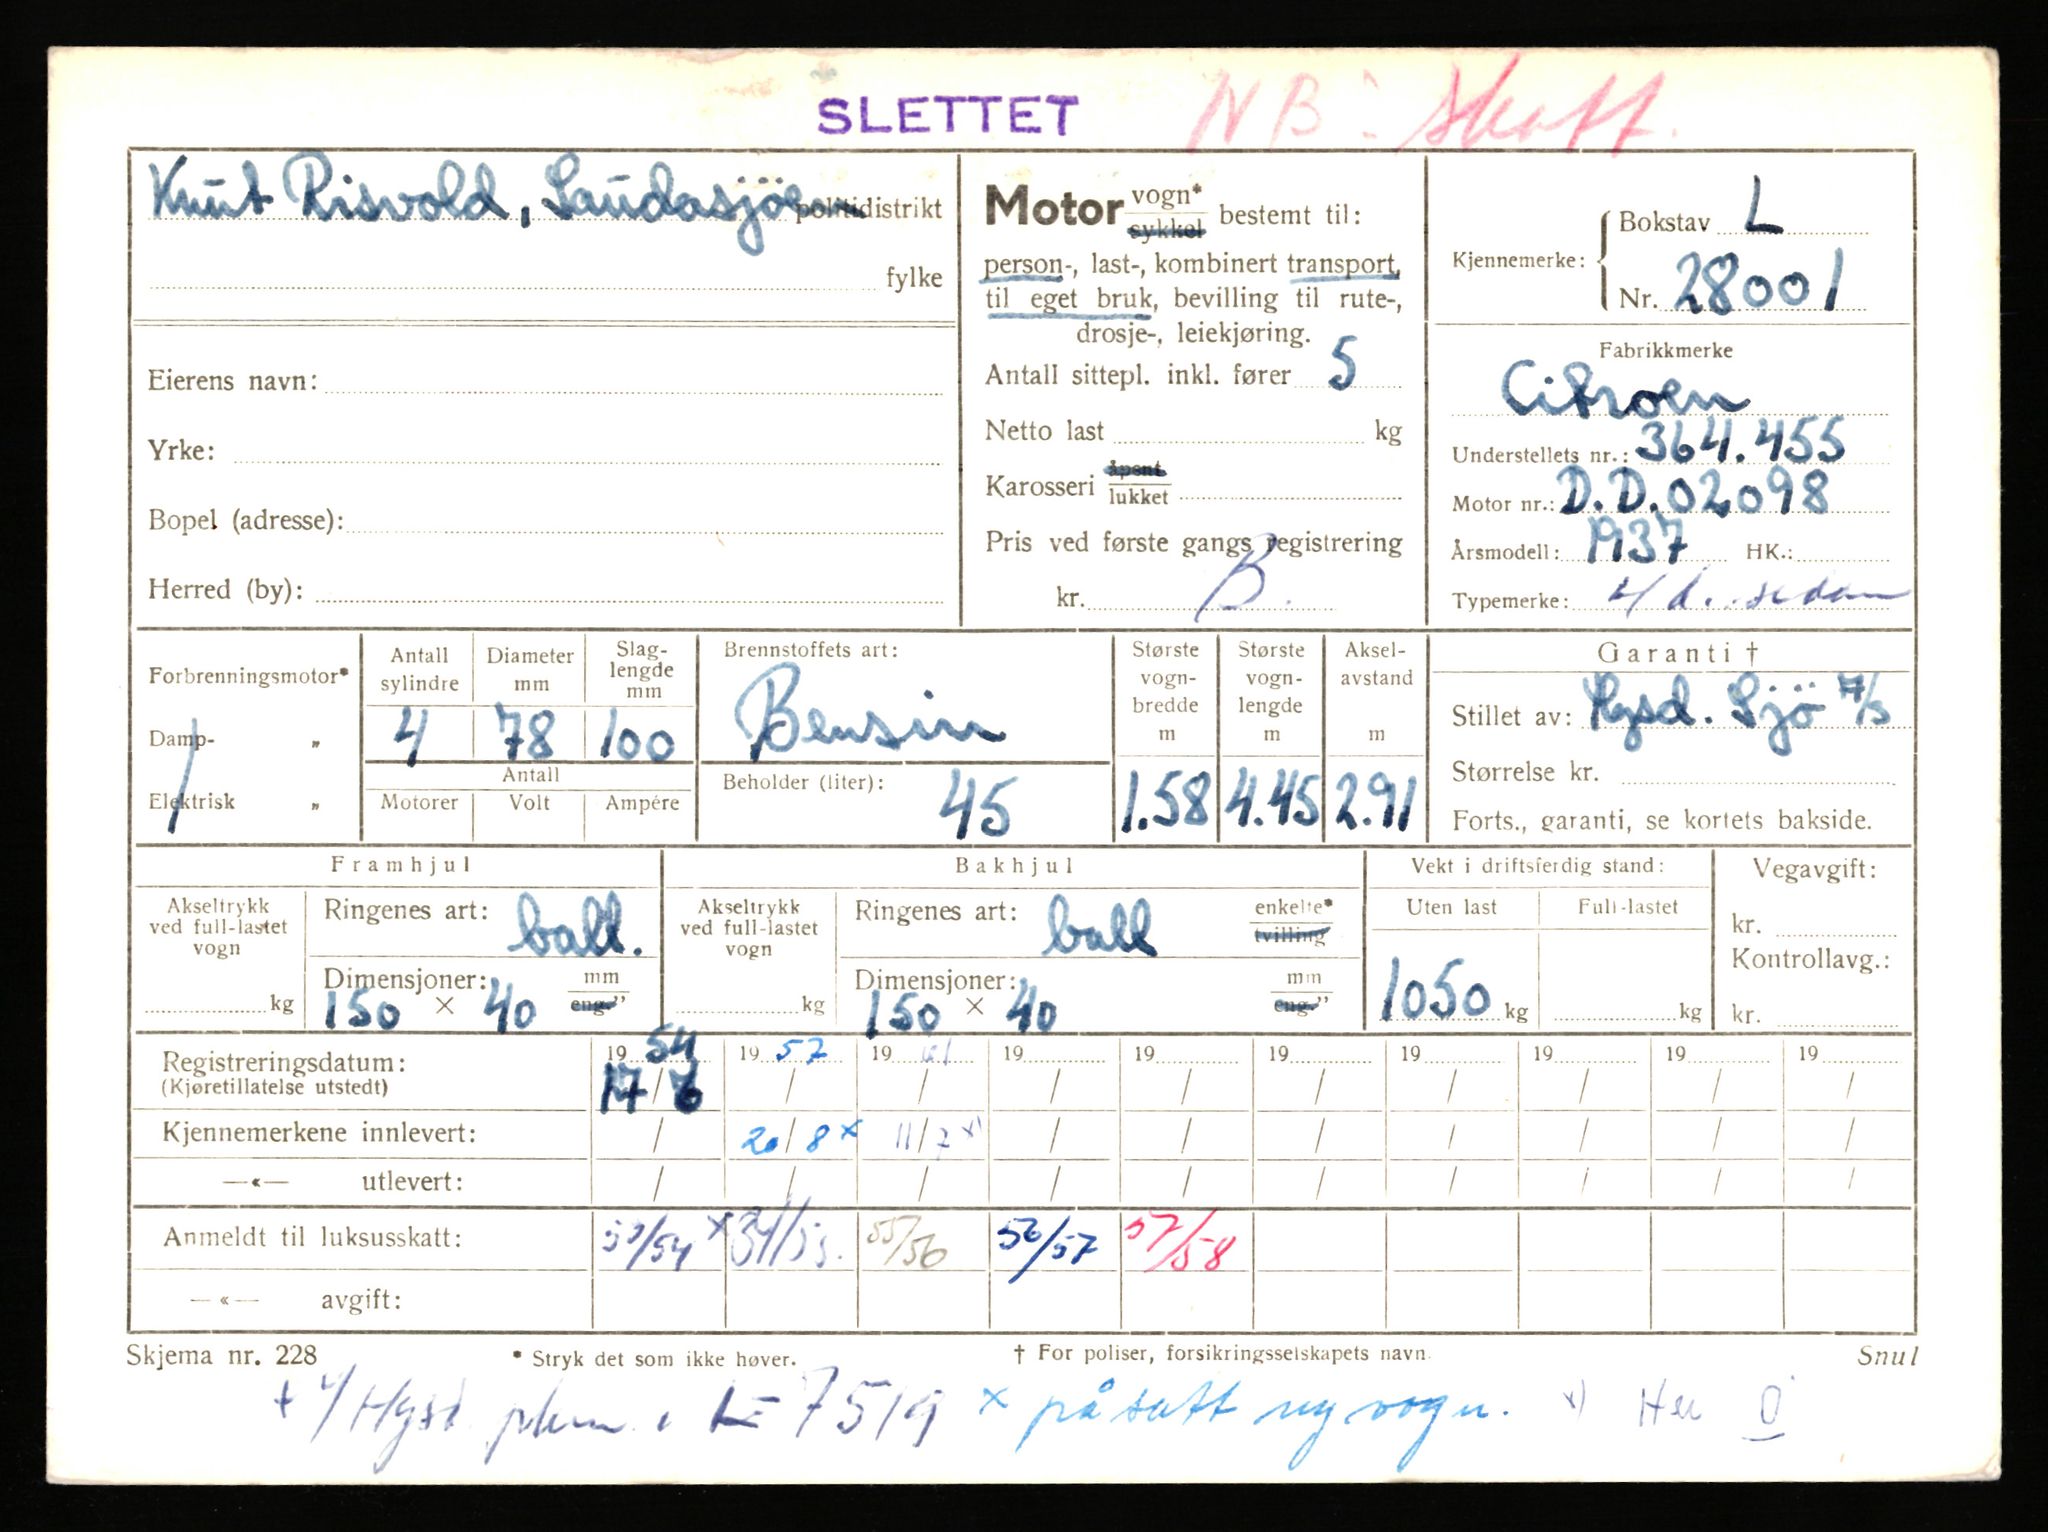 SLETTET NB: Skatt.
Knut Risvold, Saudasjøe politidistrikt
fylke
Eierens navn:
Yrke:
Bopel (adresse):
Herred (by):
Motor vogn* sykkel bestemt til:
person-, last-, kombinert transport,
til eget bruk, bevilling til rute-,
drosje-, leiekjøring.
Antall sittepl. inkl. fører 5
Netto last kg
Karosseri åpent lukket
Pris ved første gangs registrering
kr. B.
Kjennemerke: Bokstav L
Nr. 28001
Fabrikkmerke
Citroen
Understellets nr.: 364.455
Motor nr.: D.D.02098
Årsmodell: 1937 HK.:
Typemerke: 4/d. sedan
Forbrenningsmotor*
Damp- „
Elektrisk „
Antall sylindre 4
Diameter mm 78
Slaglengde mm 100
Antall
Motorer Volt Ampére
Brennstoffets art:
Bensin
Beholder (liter): 45
Største vognbredde m 1.58
Største vognlengde m 4.45
Akselavstand m 2.91
Garanti †
Stillet av: Hgsd. Sjö 7/5
Størrelse kr.
Forts., garanti, se kortets bakside.
Framhjul
Akseltrykk ved full-lastet vogn kg
Ringenes art: ball.
Dimensjoner: mm eng."
150 × 40
Bakhjul
Akseltrykk ved full-lastet vogn kg
Ringenes art: ball enkelte* tvilling
Dimensjoner: mm eng."
150 × 40
Vekt i driftsferdig stand:
Uten last Full-lastet
1050 kg kg
Vegavgift:
kr.
Kontrollavg.:
kr.
Registreringsdatum: 19 54 19 57 19 61 19 19 19 19 19 19 19
(Kjøretillatelse utstedt) 17/6 / / / / / / / / /
Kjennemerkene innlevert: / 20/8 x 11/7 x) / / / / / / /
—«— utlevert: / / / / / / / / / /
Anmeldt til luksusskatt: 53/54 x 54/55. 55/56 56/57 57/58
—«— avgift:
Skjema nr. 228 * Stryk det som ikke høver. † For poliser, forsikringsselskapets navn. Snul
Hgsd. L-7519 x påsatt ny vogn. x)